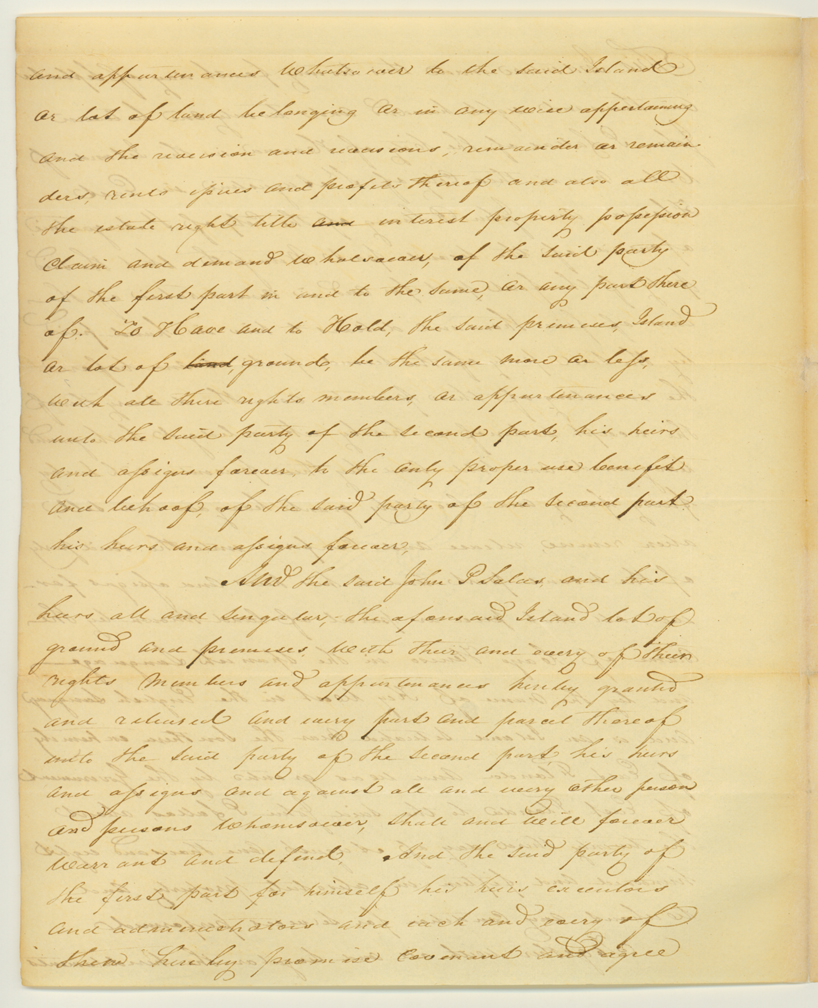 and appurtenances whatsoever to the said Island
or lot of land belonging or in any wise appertaining
and the revision and revisions, remainder or remain
ders, rents issues and profits thereof and also all
the estate right title and interest property possession
claim and demand whatsoever, of the said party
of the first part in and to the same, or any part there
of. To Have and to Hold, the said premises, Island
or lot of land ground, be the same more or less,
with all there rights members, or appurtenances
unto the said party of the second part, his heirs
and assigns forever, to the only proper use benefit
and behoof, of the said party of the second part
his heirs and assigns forever,
And the said John P Salas, and his
heirs all and singular, the aforesaid Island lot of
ground and premises with their and every of their
rights members and appurtenances hereby granted
and released and every part and parcel thereof
unto the said party of the second part, his heirs
and assigns and against all and every other person
and persons whomsoever, shall and will forever
warrant and defend. And the said party of
the first part for himself his heirs executors
and administrators and each and every of
them hereby promise covenant and agree